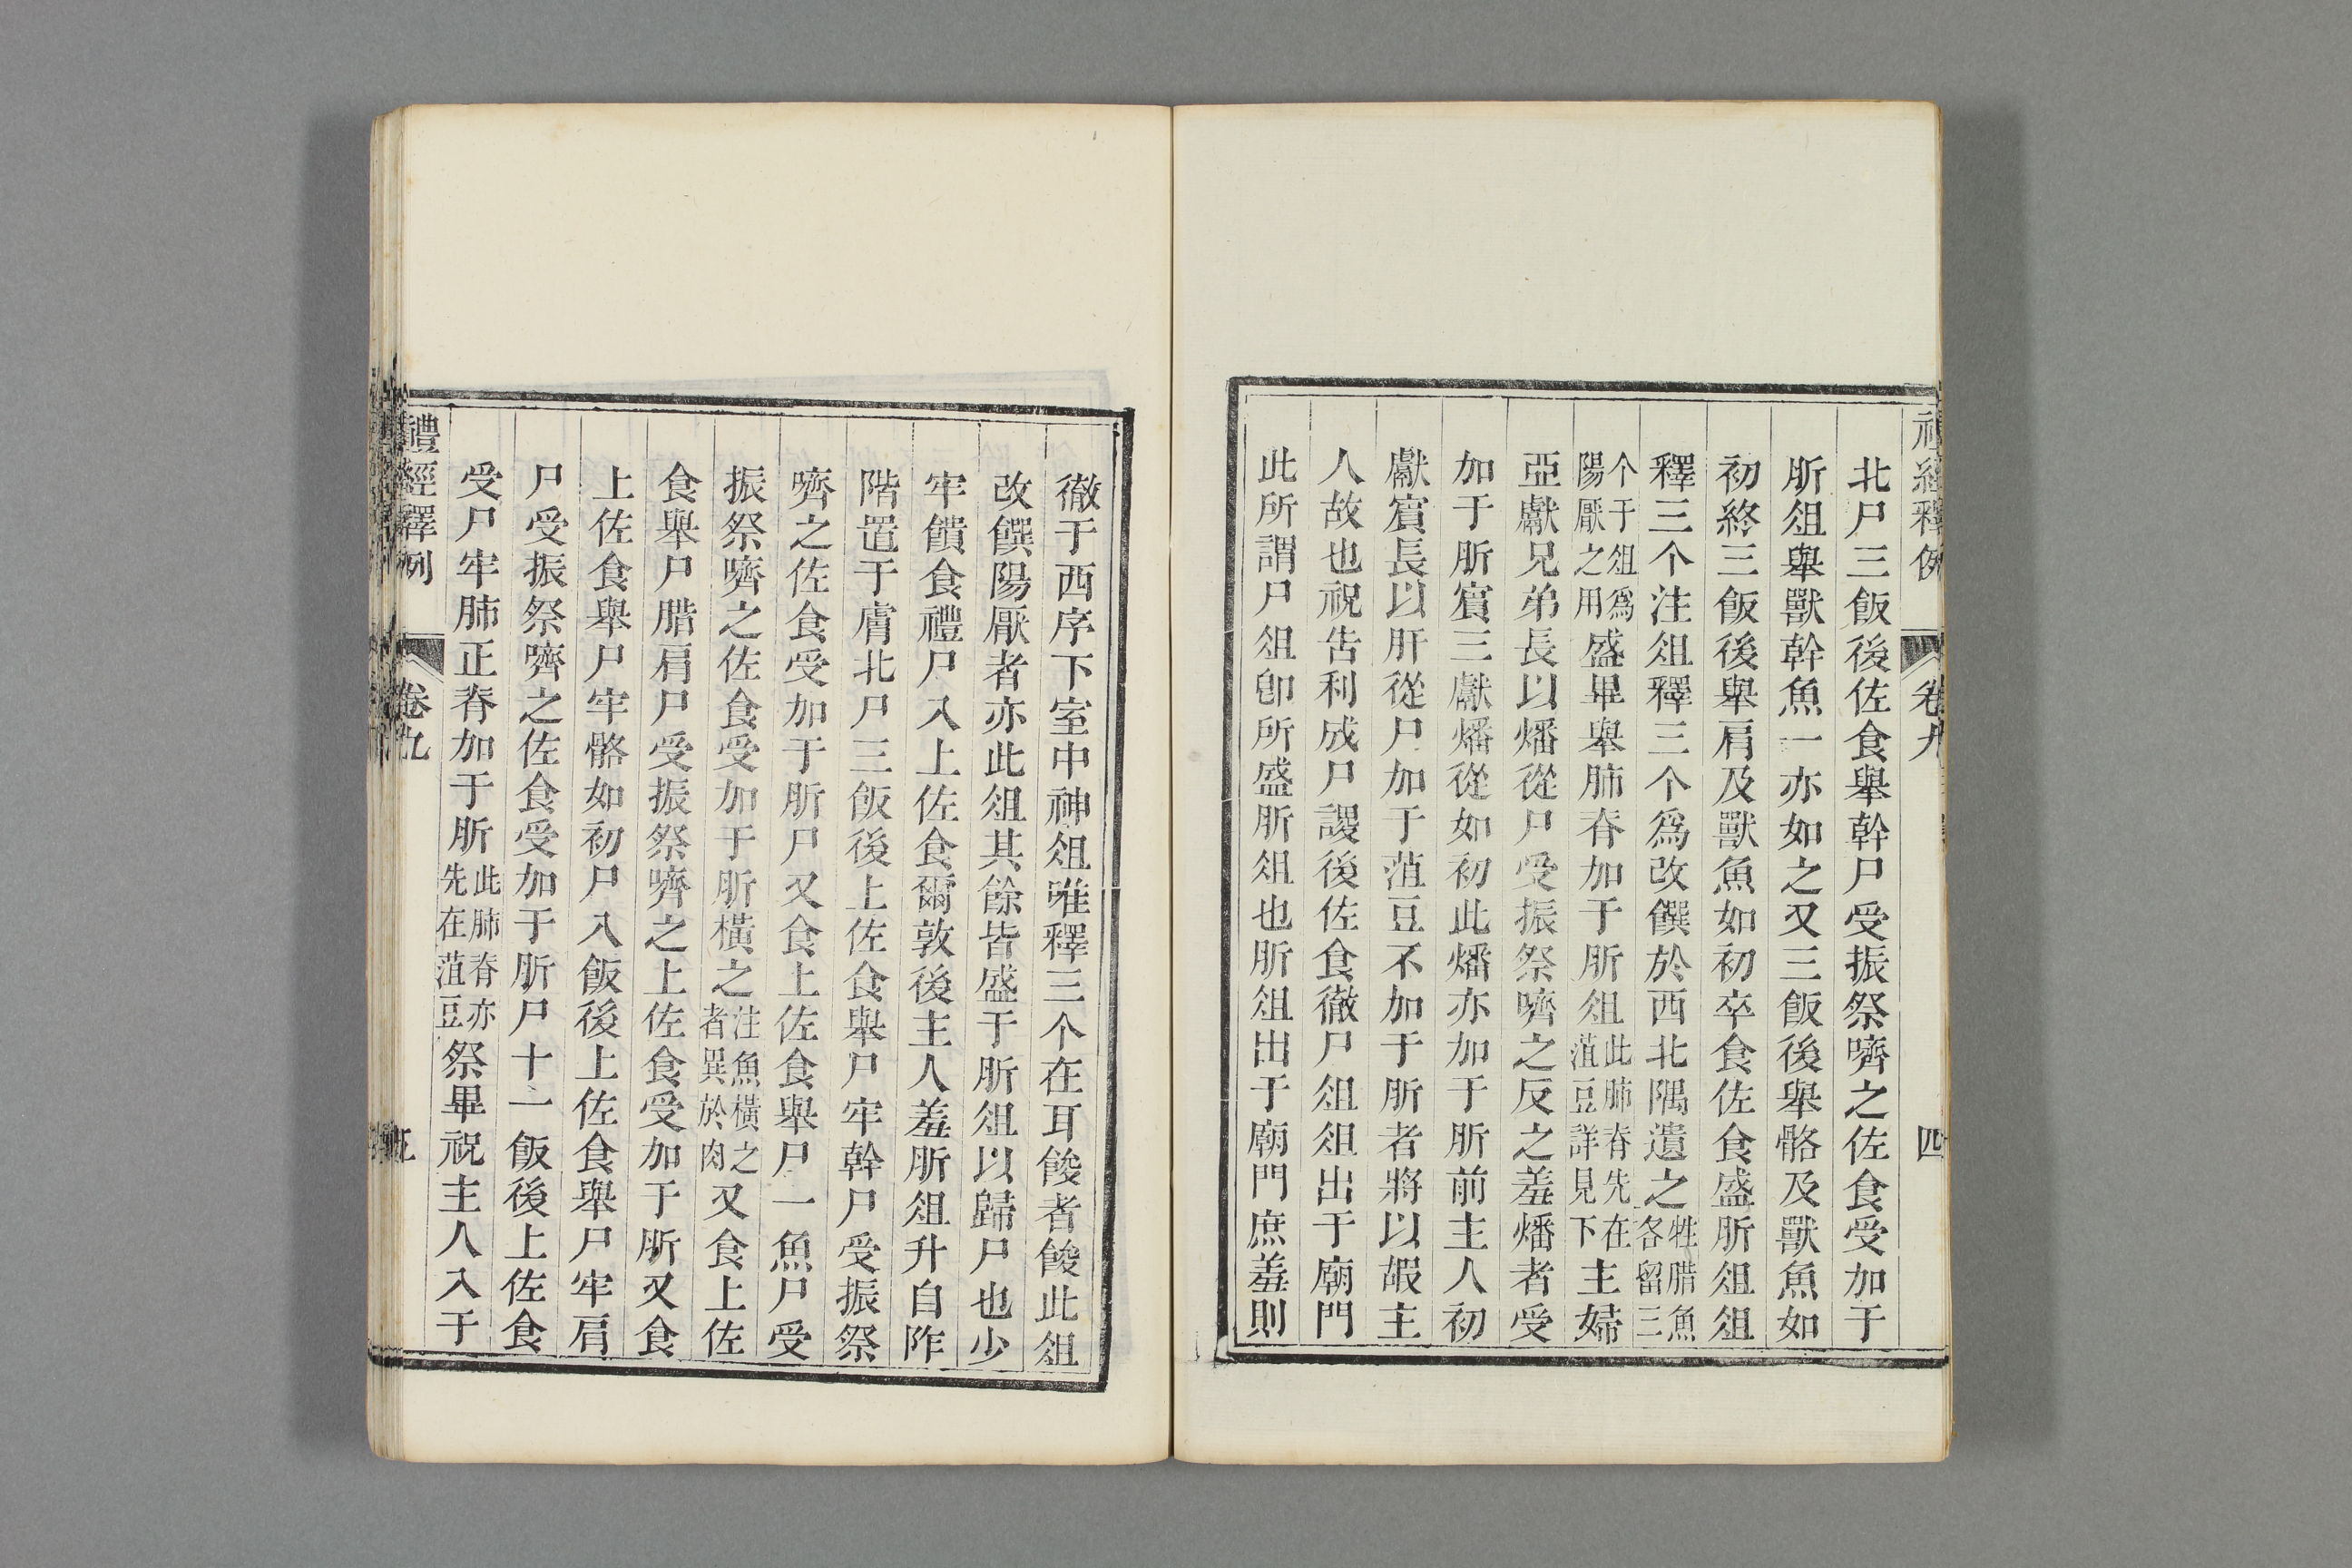 禮經釋例 卷九 四
北尸三飯後佐食舉幹尸受振祭嚌之佐食受加于
肵俎舉獸幹魚一亦如之又三飯後舉骼及獸魚如
初終三飯後舉肩及獸魚如初卒食佐食盛肵俎俎
釋三个注俎釋三个爲改饌於西北隅遺之牲腊魚各留三
个于俎爲陽厭之用盛畢舉肺脊加于肵俎此肺脊先在菹豆詳見下主婦
亞獻兄弟長以燔從尸受振祭嚌之反之羞燔者受
加于肵賓三獻燔從如初此燔亦加于肵前主人初
獻賓長以肝從尸加于菹豆不加于肵者將以嘏主
人故也祝告利成尸謖後佐食徹尸俎俎出于廟門
此所謂尸俎卽所盛肵俎也肵俎出于廟門庶羞則
徹于西序下室中神俎唯釋三个在耳餕者餕此俎
改饌陽厭者亦此俎其餘皆盛于肵俎以歸尸也少
牢饋食禮尸入上佐食爾敦後主人羞肵俎升自阼
階置于膚北尸三飯後上佐食舉尸牢幹尸受振祭
嚌之佐食受加于肵尸又食上佐食舉尸一魚尸受
振祭嚌之佐食受加于肵橫之注魚橫之者異於肉又食上佐
食舉尸腊肩尸受振祭嚌之上佐食受加于肵又食
上佐食舉尸牢骼如初尸入飯後上佐食舉尸牢肩
尸受振祭嚌之佐食受加于肵尸十一飯後上佐食
受尸牢肺正脊加于肵此肺脊亦先在菹豆祭畢祝主人入于
禮經釋例 卷九 五